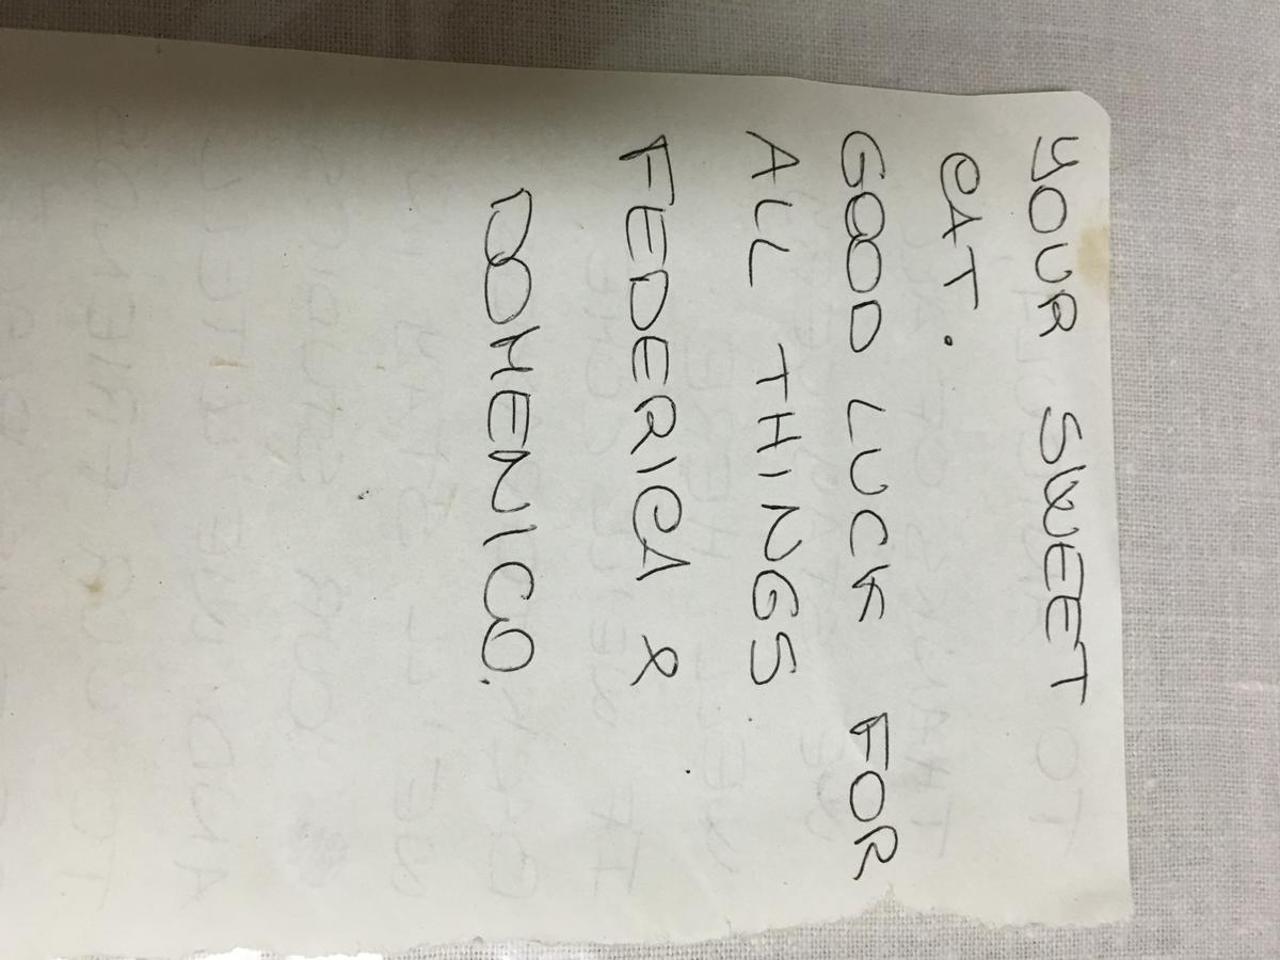 YOUR SWEET
CAT.
GOOD LUCK FOR
ALL THINGS
FEDERICA &
DOMENICO.